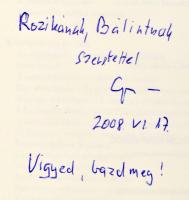 Rozikának, Bálintnak
szeretettel
2008. VI. 17.
Vigyed, bazdmeg!